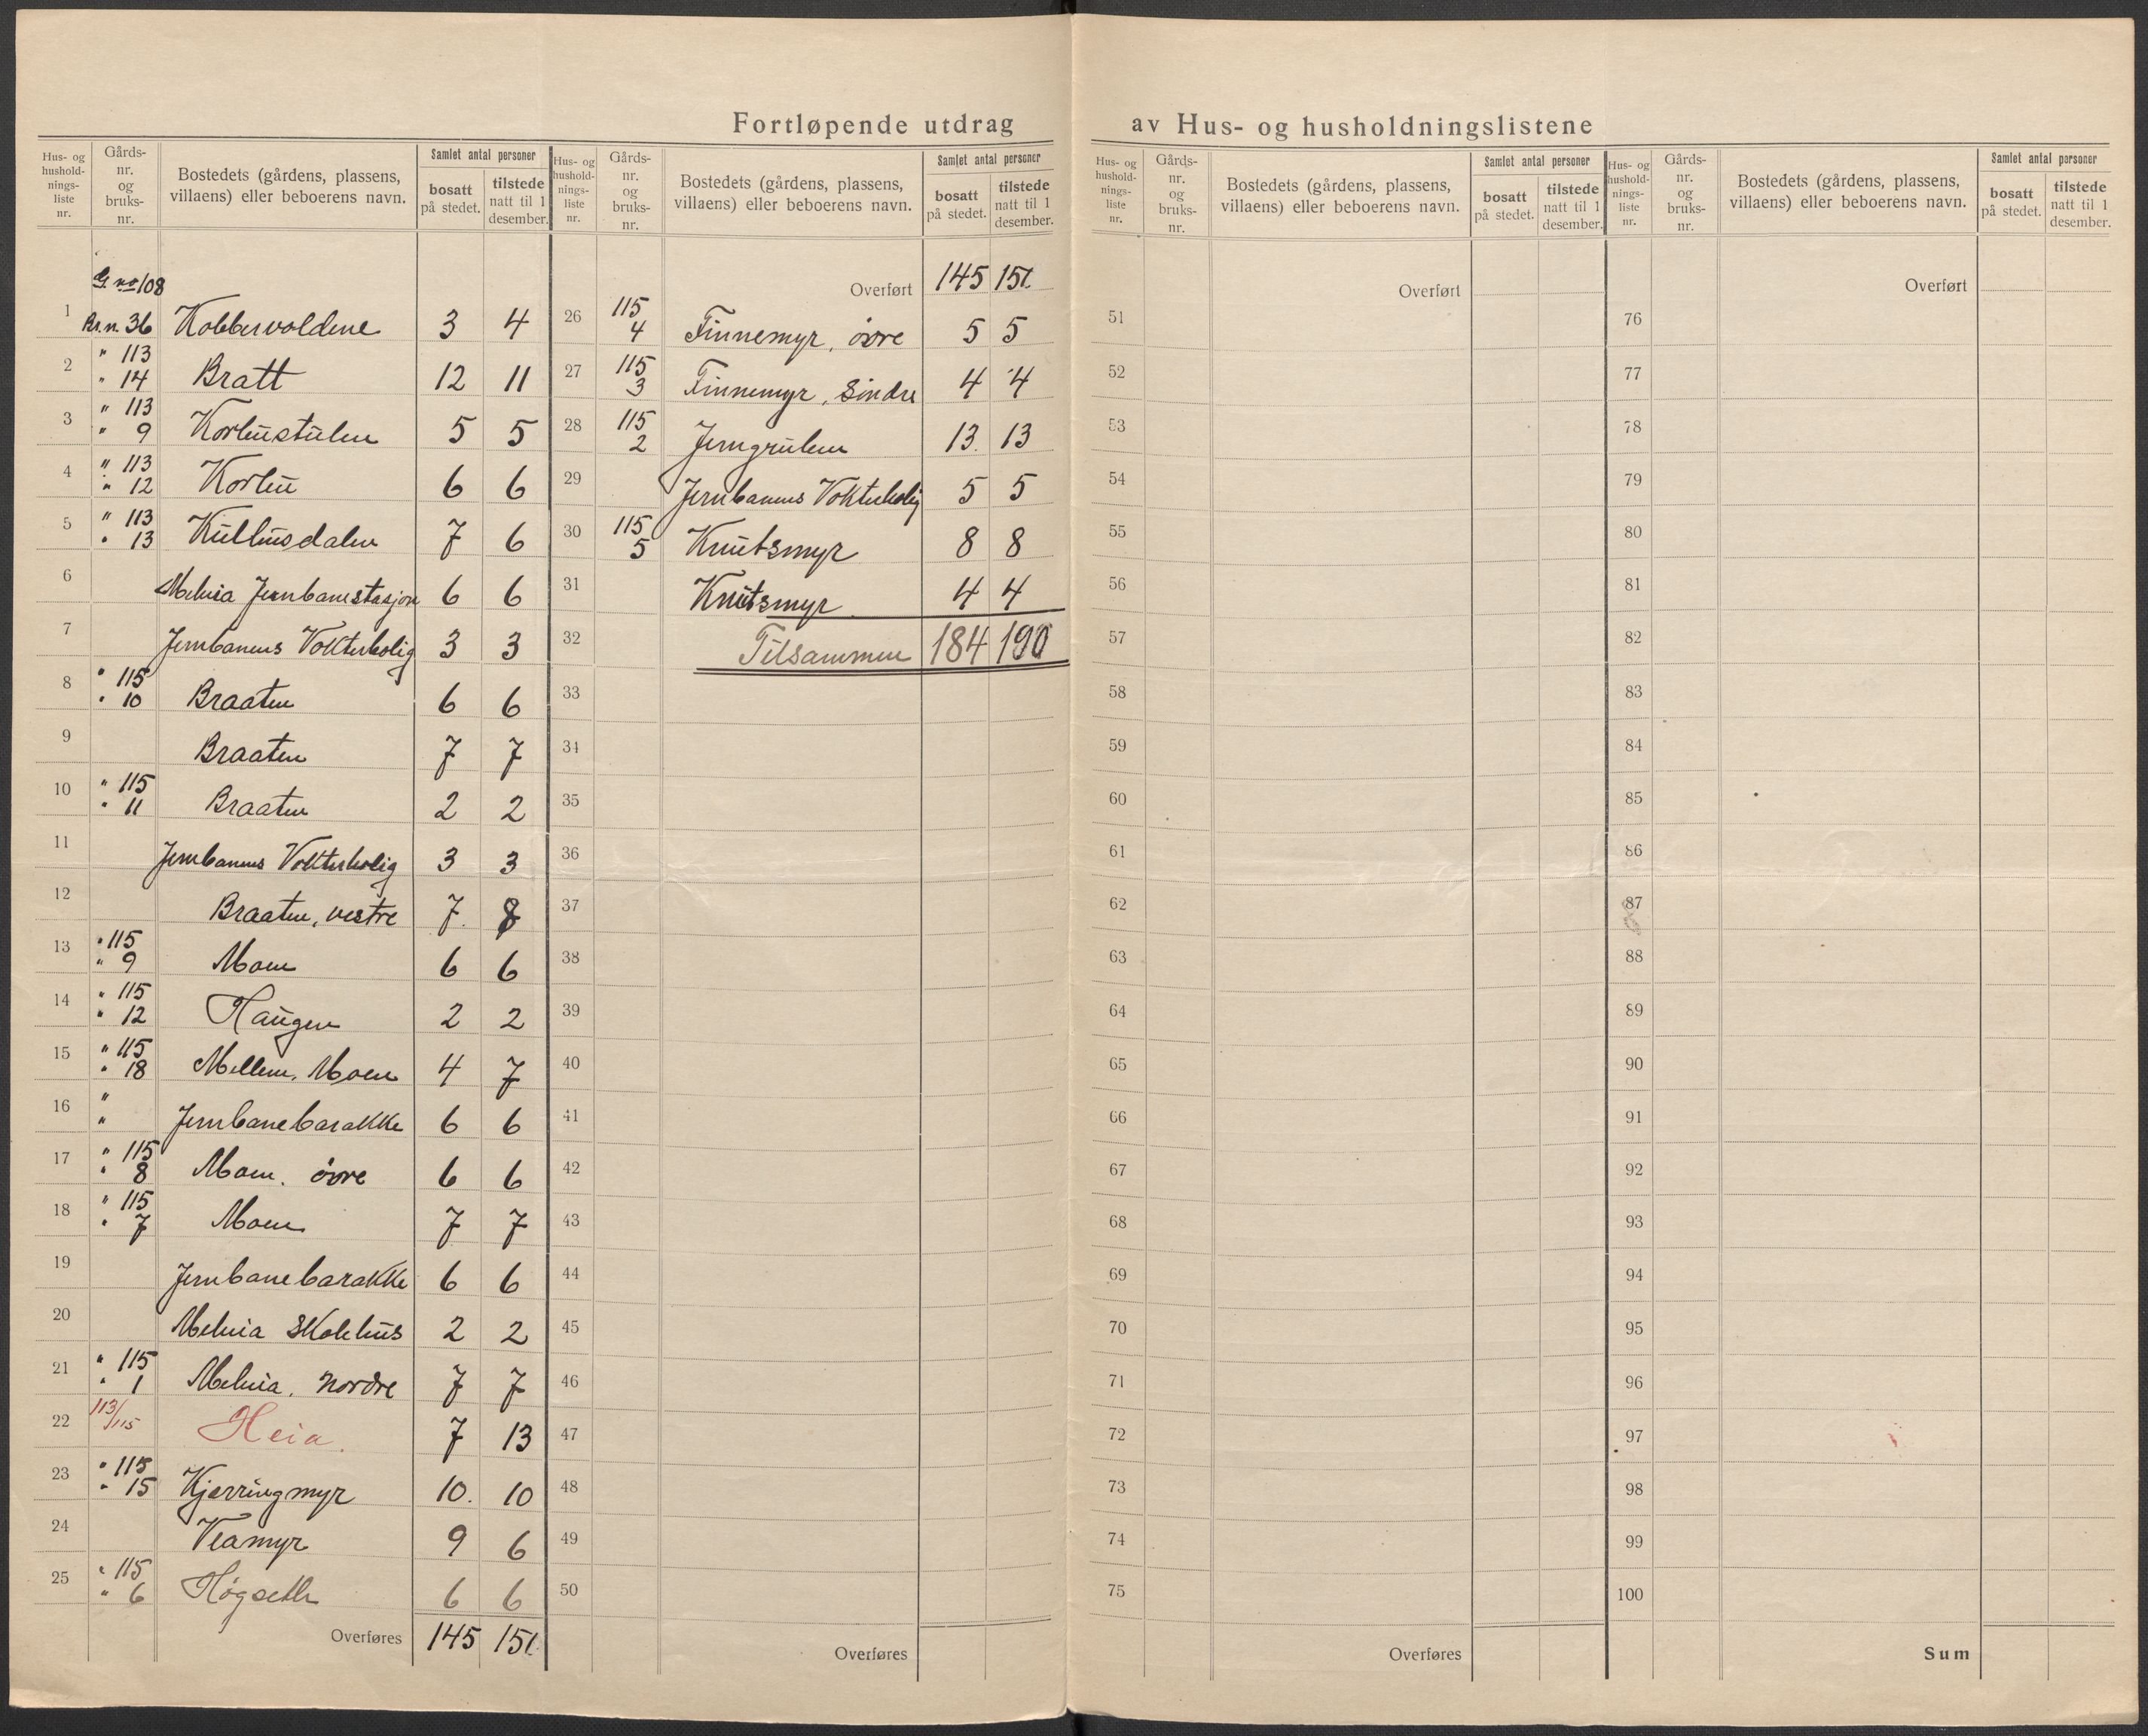 Fortløpende utdrag av Hus- og husholdningslistene
Hus- og husholdningsliste nr. | Gårds-nr. og bruks-nr. | Bostedets (gårdens, plassens, villaens) eller beboerens navn. | Samlet antal personer | bosatt på stedet. | tilstede natt til 1 desember.
G. no 108
1 Br.n. 36 Kobbervoldene 3 4
2 " 113 " 14 Bratt 12 11
3 " 113 " 9 Korhustulen 5 5
4 " 113 " 12 Korhu 6 6
5 " 113 " 13 Kulhusdalen 7 6
6 Meheia Jernbanestasjon 6 6
7 Jernbanens Vokterbolig 3 3
8 " 115 " 10 Braaten 6 6
9 Braaten 7 7
10 " 115 " 11 Braaten 2 2
11 Jernbanens Vokterbolig 3 3
12 Braaten, vestre 7. 8
13 " 115 " 9 Moen 6 6
14 " 115 " 12 Haugen 2 2
15 " 115 " 18 Mellem, Moen 4 7
16 " " Jernbanebarakke 6 6
17 " 115 " 8 Moen. övre 6 6
18 " 115 " 7 Moen 7 7
19 Jernbanebarakke 6 6
20 Meheia Skolehus 2 2
21 " 115 " 1 Meheia, Nordre 7 7
22 113/115 Heia. 7 13
23 " 115 " 15 Kjærringmyr 10. 10
24 Veamyr 9 6
25 " 115 " 6 Høgseth 6 6
Overføres 145 151
Hus- og husholdningsliste nr. | Gårds-nr. og bruks-nr. | Bostedets (gårdens, plassens, villaens) eller beboerens navn. | Samlet antal personer | bosatt på stedet. | tilstede natt til 1 desember.
Overført 145 151
26 115 4 Finnemyr, övre 5 5
27 115 3 Finnemyr, Söndre 4 4
28 115 2 Jerngruben 13. 13
29 Jernbanens Vokterbolig 5 5
30 115 5 Knutsmyr 8 8
31 Knutsmyr 4 4
32 Tilsammen 184 190
33
34
35
36
37
38
39
40
41
42
43
44
45
46
47
48
49
50
Overføres
Hus- og husholdningsliste nr. | Gårds-nr. og bruks-nr. | Bostedets (gårdens, plassens, villaens) eller beboerens navn. | Samlet antal personer | bosatt på stedet. | tilstede natt til 1 desember.
Overført
51
52
53
54
55
56
57
58
59
60
61
62
63
64
65
66
67
68
69
70
71
72
73
74
75
Overføres
Hus- og husholdningsliste nr. | Gårds-nr. og bruks-nr. | Bostedets (gårdens, plassens, villaens) eller beboerens navn. | Samlet antal personer | bosatt på stedet. | tilstede natt til 1 desember.
Overført
76
77
78
79
80
81
82
83
84
85
86
87
88
89
90
91
92
93
94
95
96
97
98
99
100
Sum